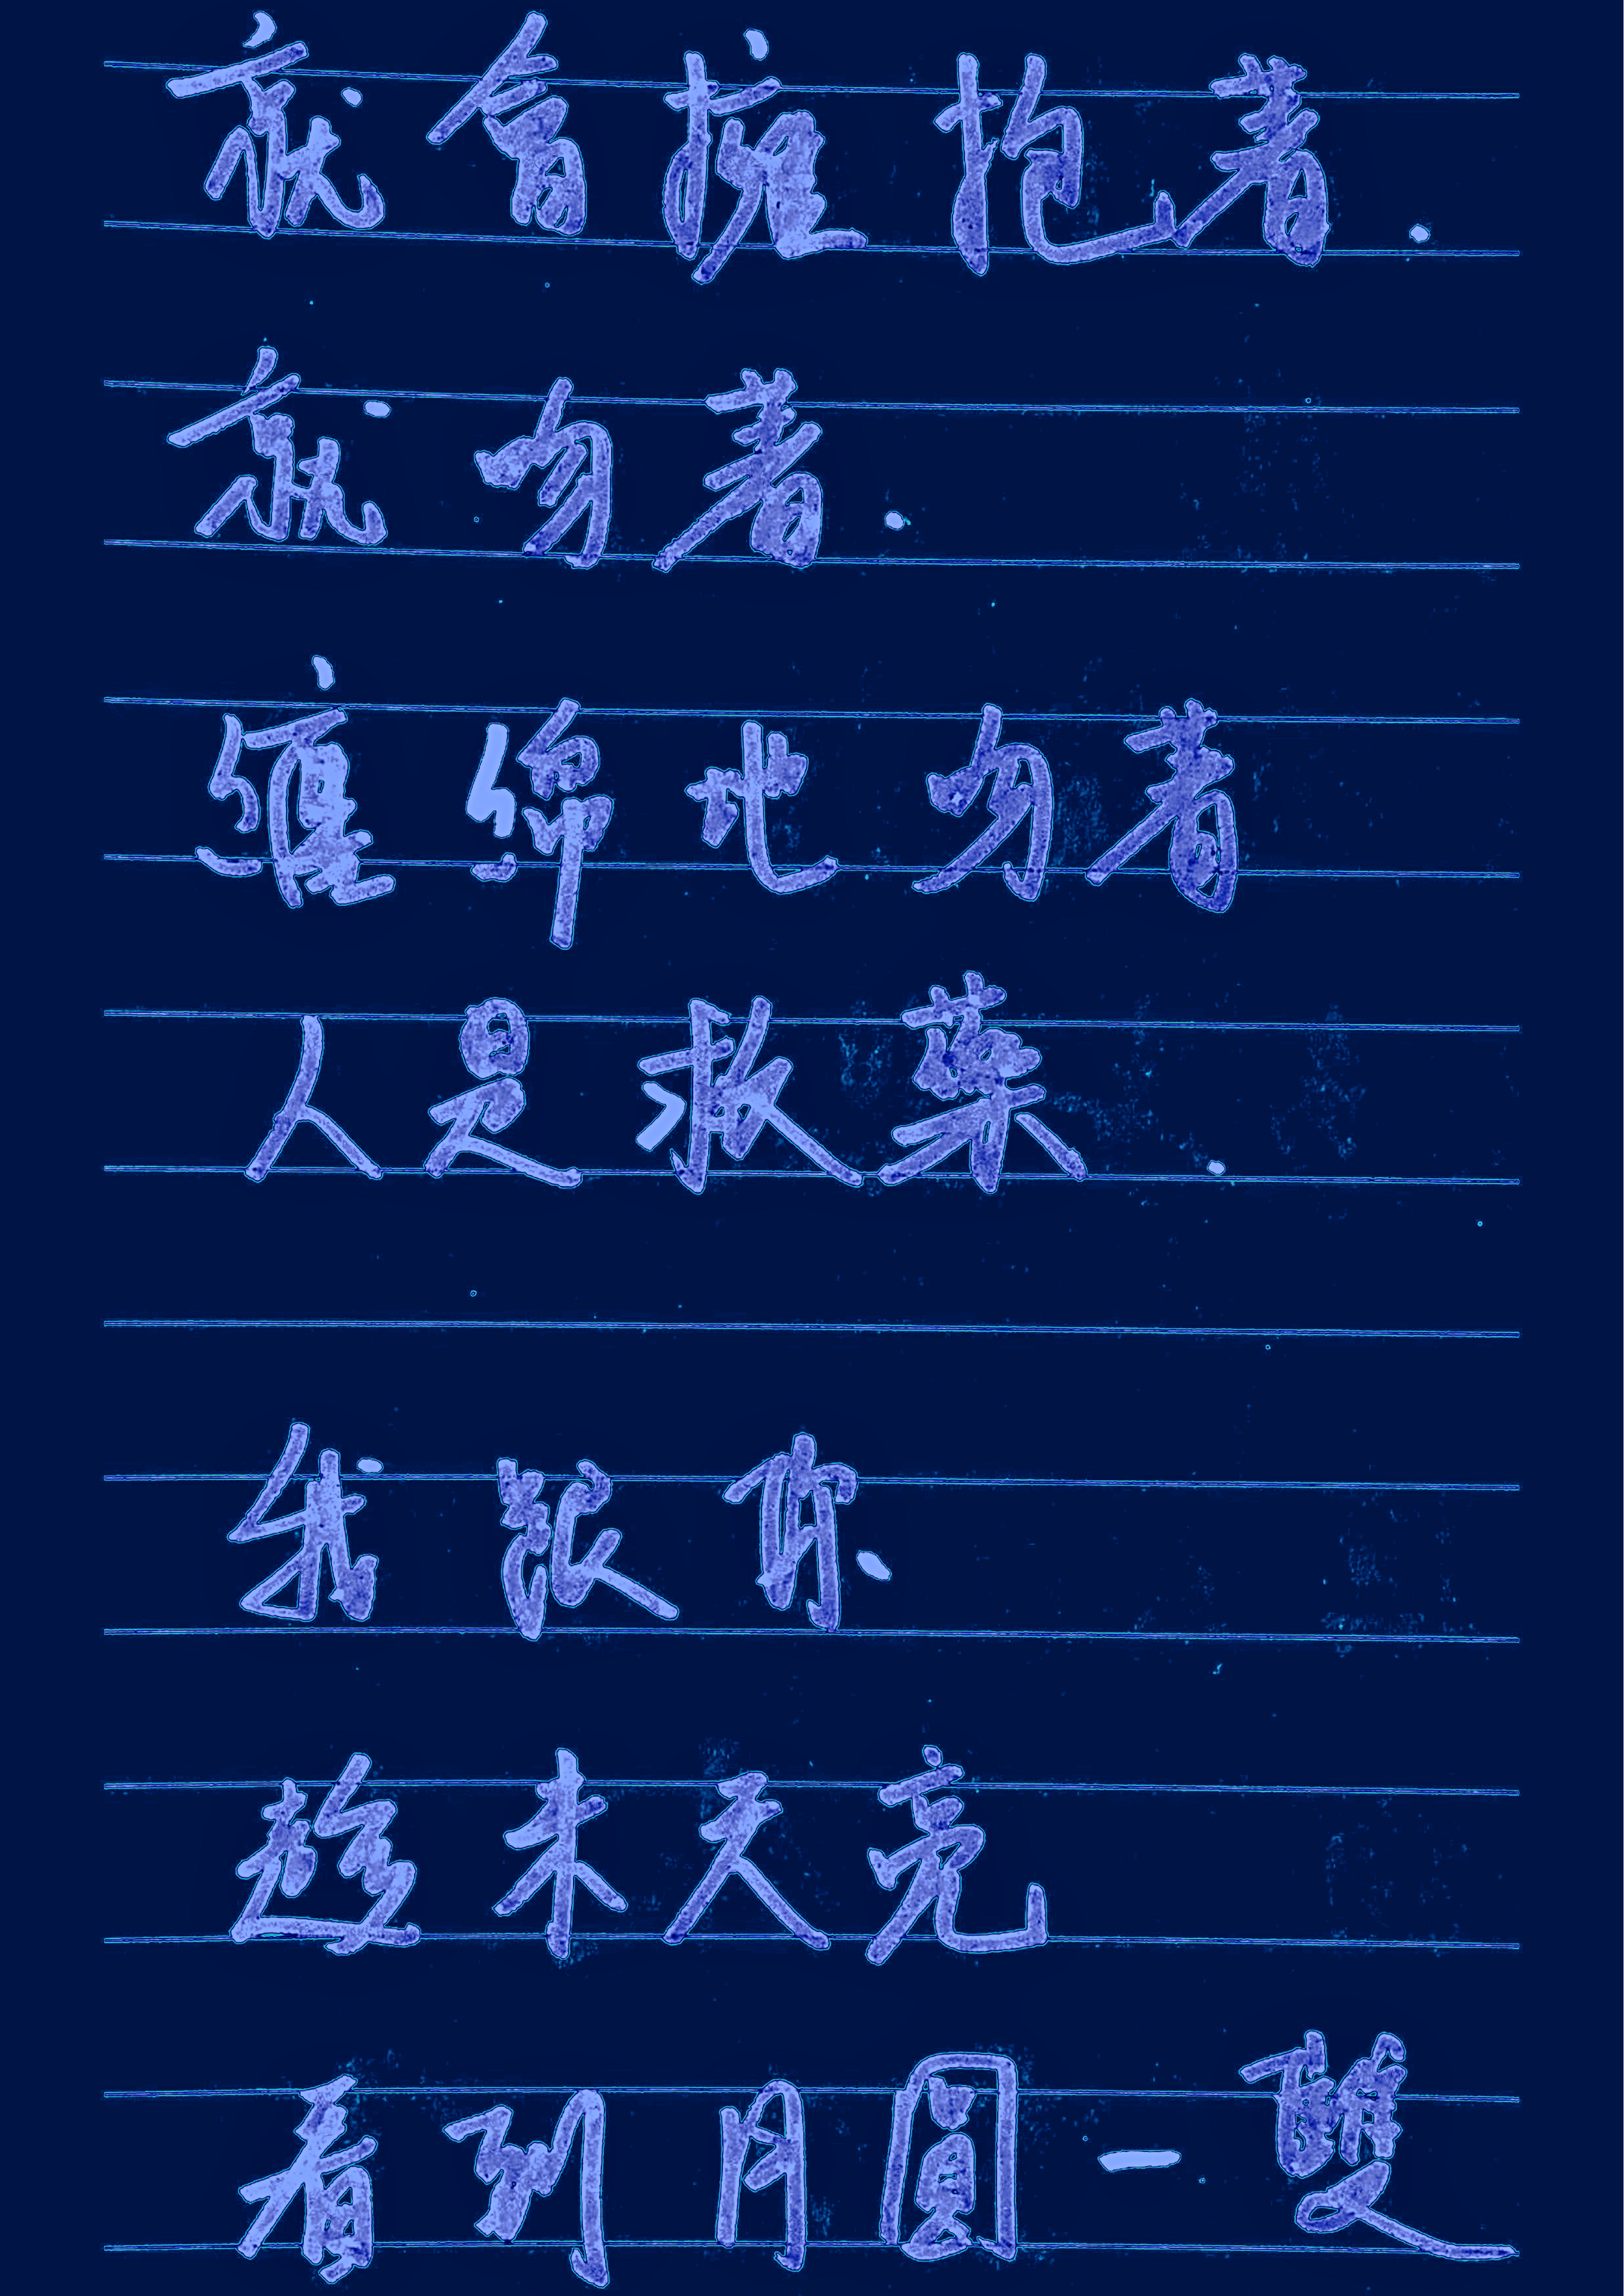 就會擁抱著.
就吻著.
纏綿地吻著
人是救藥.
我跟你.
趁未天亮
看到月圓一雙